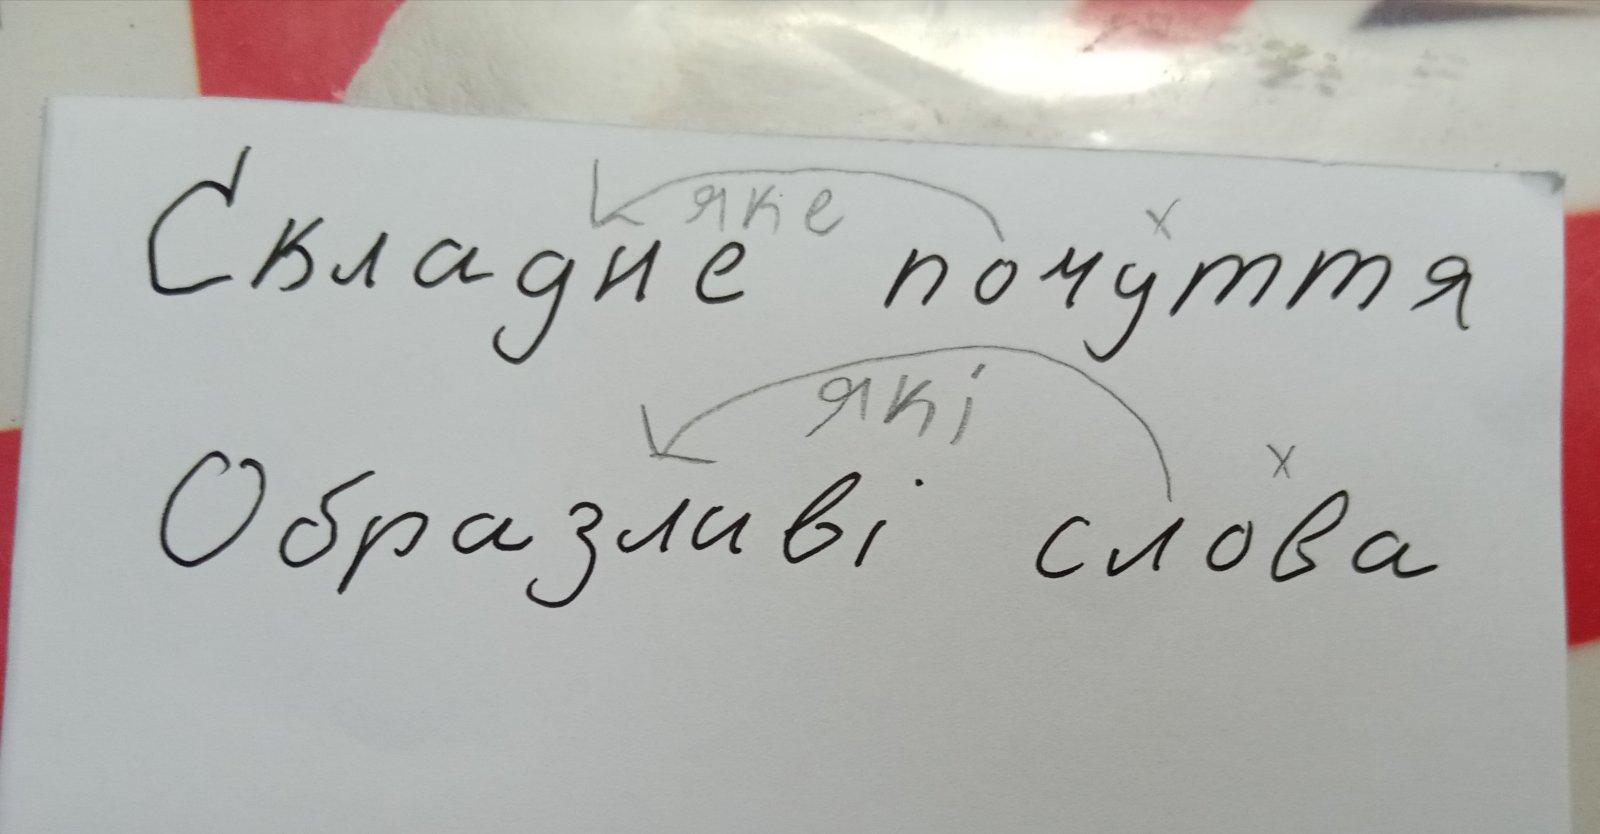 яке х
Складне почуття
які х
Образливі слова